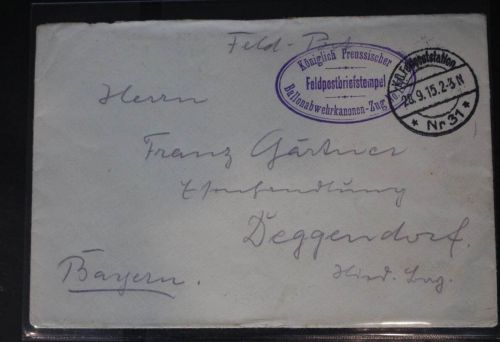 Feld-Post
Königlich Preussischer
Feldpostbriefstempel
Ballonabwehrkanonen-Zug
K.D. Feldpoststation
28.9.15.2-3N
* Nr 31 *
Herrn
Franz Gärtner
Deggendorf.
Bayern.